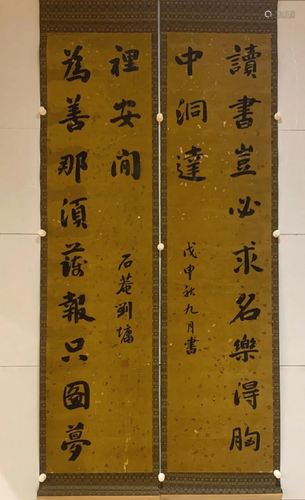 讀書豈必求名樂得胸
中洞達
戊申秋九月書
為善那須蒞報只圖夢
裡安閒
石菴劉墉